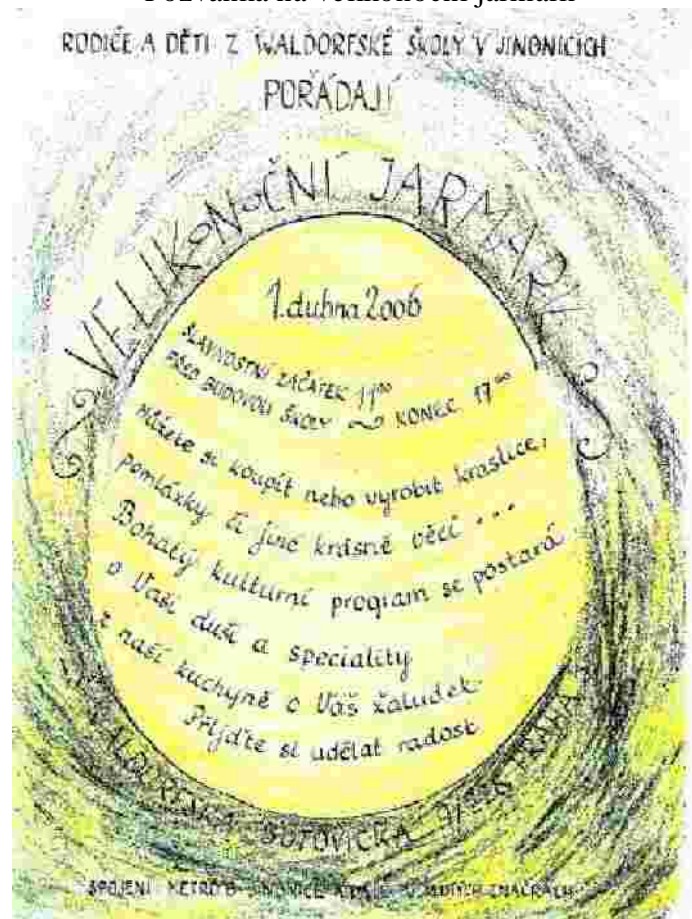 RODIČE A DĚTI Z WALDORFSKÉ ŠKOLY V JINONICÍCH
POŘÁDAJÍ
VELIKONOČNÍ JARMARK
1. dubna 2006
SLAVNOSTNÍ ZAČÁTEK 11⁰⁰
PŘED BUDOVOU ŠKOLY ~ KONEC 17⁰⁰
Můžete si koupit nebo vyrobit kraslice,
pomlázky či jiné krásné věcí ...
Bohatý kulturní program se postará
o Vaši duši a speciality
z naší kuchyně o Váš žaludek
Přijďte si udělat radost
BUTOVICKÁ PRAHA
SPOJENÍ METRO B JINONICE ZNAČKÁCH